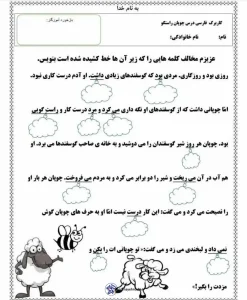 به نام خدا
کاربرگ فارسی درس چوپان راستگو
نام:
نام خانوادگی:
بازخورد آموزگار:
عزیزم مخالف کلمه هایی را که زیر آن ها خط کشیده شده است بنویس.
روزی بود و روزگاری، مردی بود که گوسفندهای زیادی داشت. او آدم درست کاری نبود.
امّا چوپانی داشت که از گوسفندهای او نگه داری می کرد و مرد درست کار و راست گویی
بود. چوپان هر روز شیر گوسفندان را می دوشید و به خانه ی صاحب گوسفندها می برد. او
هم آب در آن می ریخت و شیر را دو برابر می کرد و به مردم می فروخت. چوپان هر بار او
را نصیحت می کرد و می گفت: این کار درست نیست امّا او به حرف های چوپان گوش
نمی داد و لبخندی می زد و می گفت: تو چوپانی ات را بکن و
مزدت را بگیر!